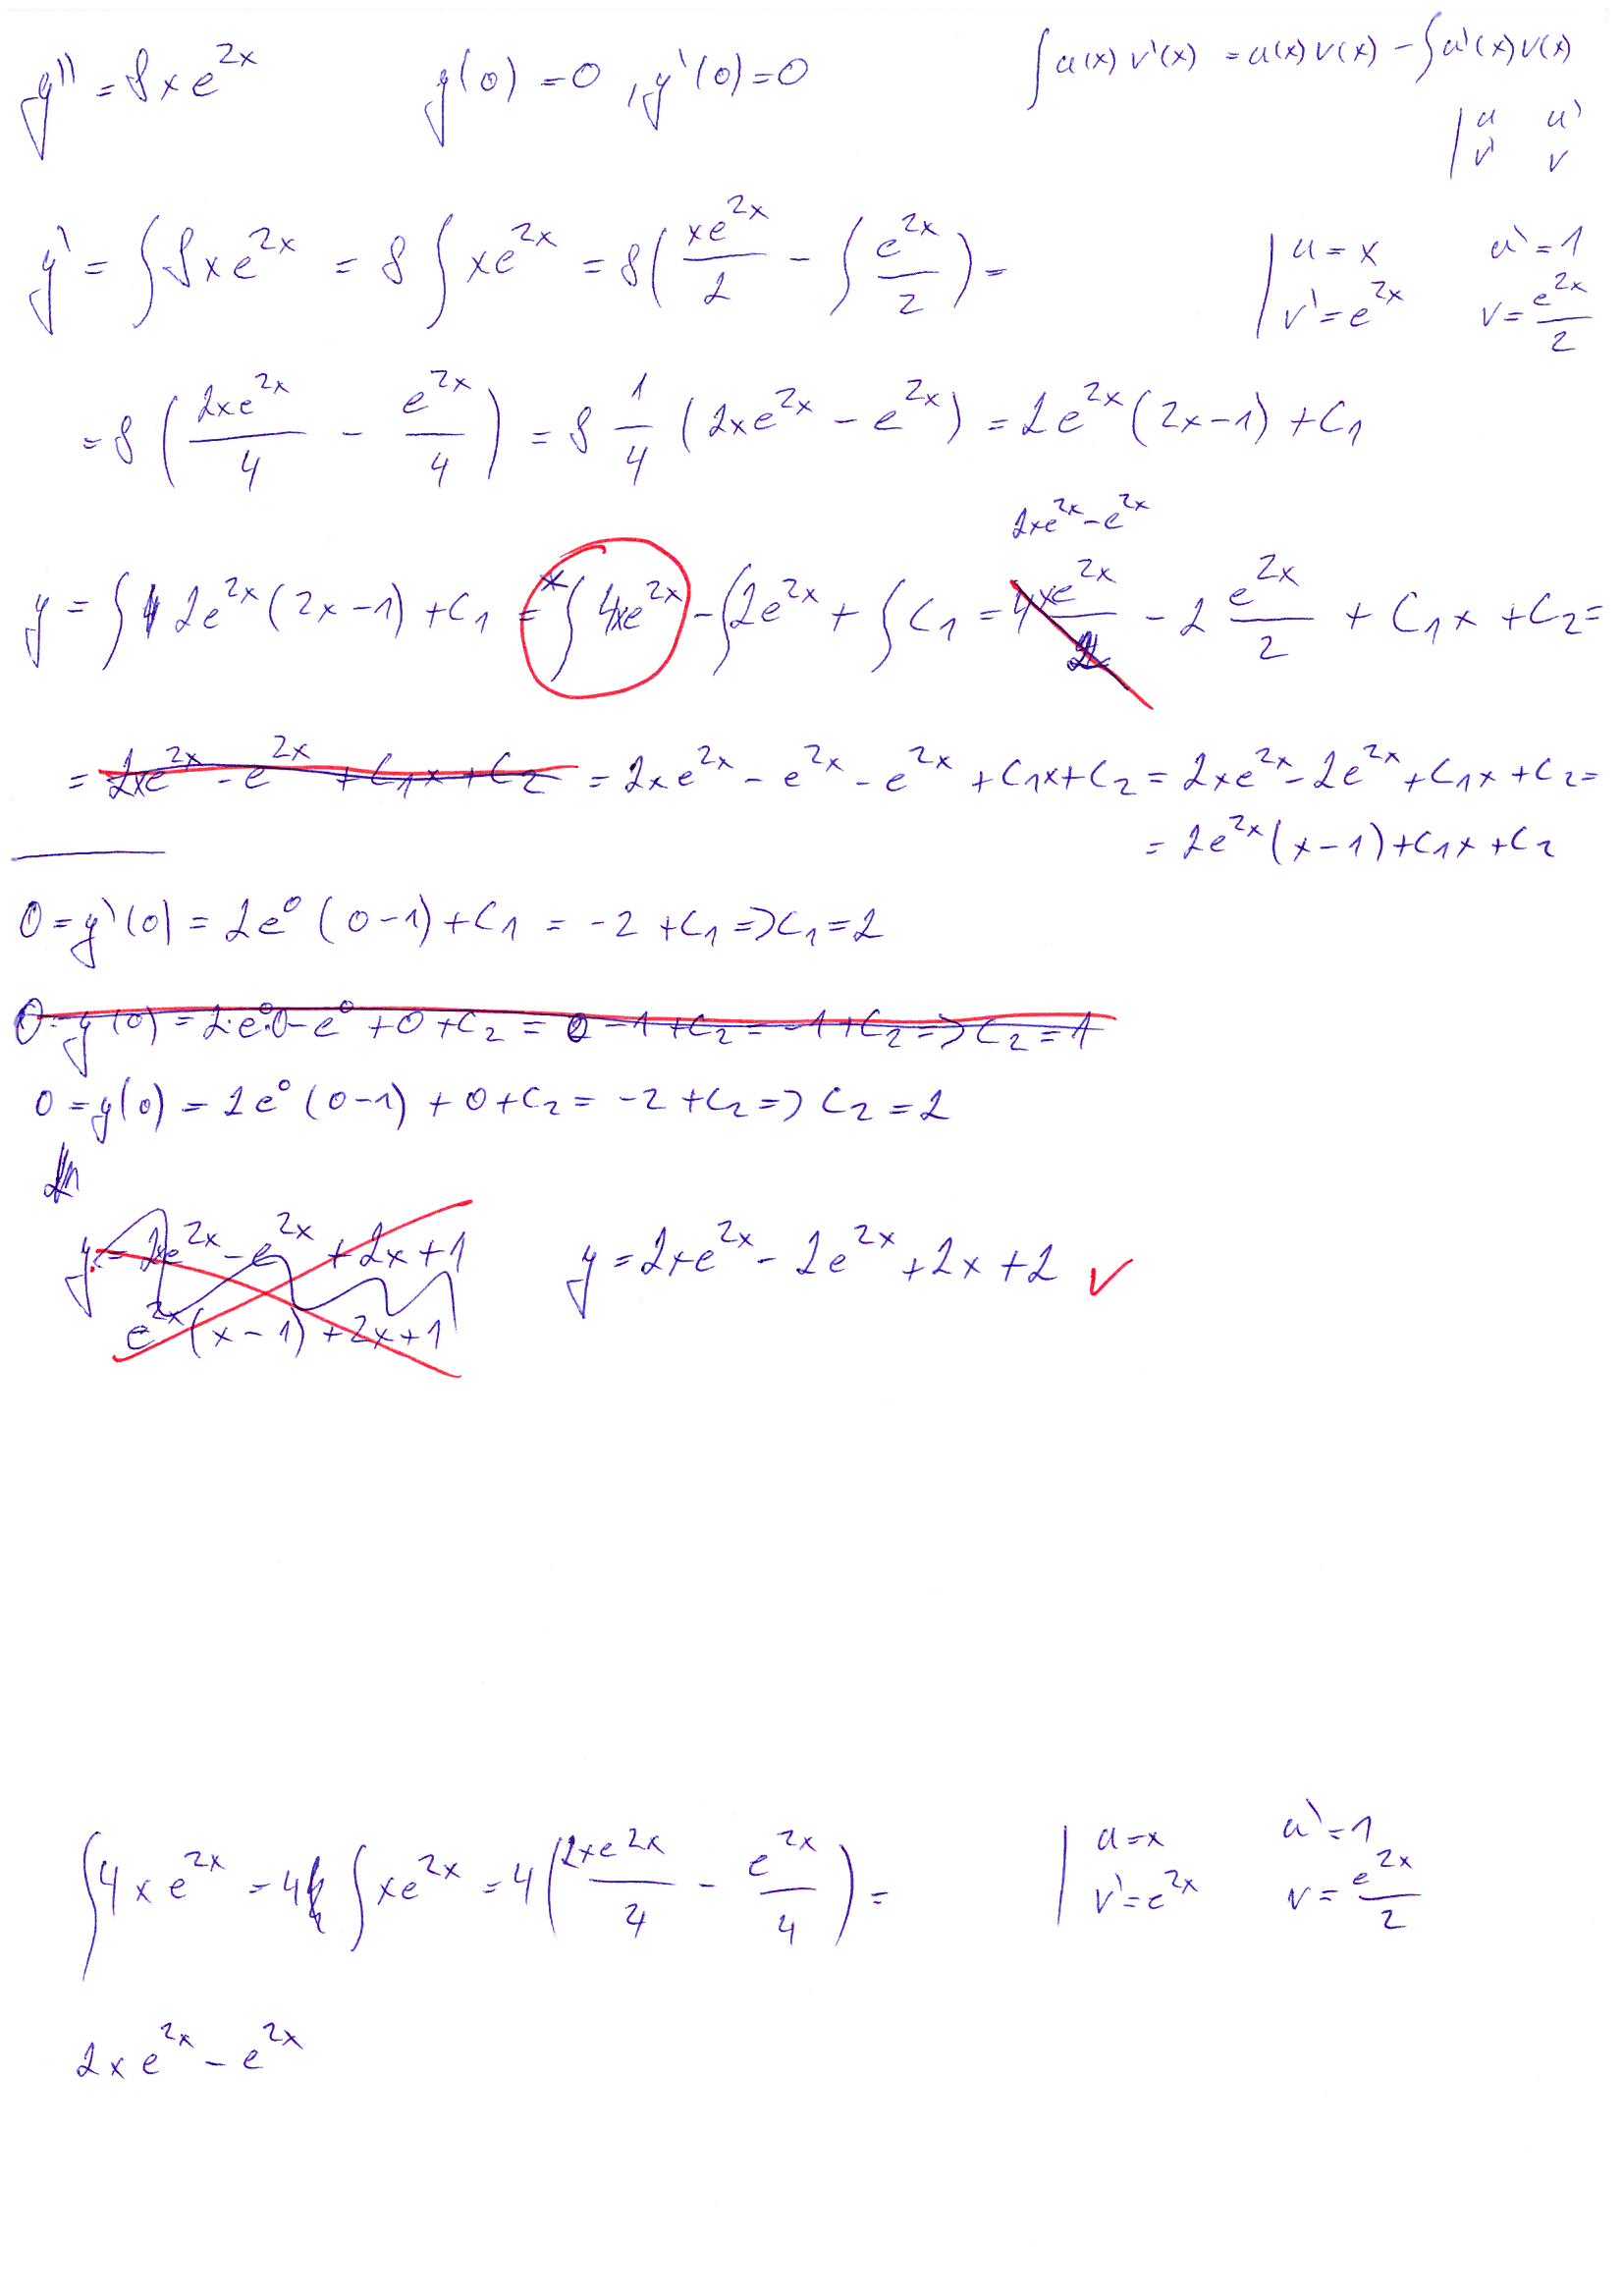 y'' = 8xe^{2x} y(0) = 0 , y'(0) = 0 ∫u(x) v'(x) = u(x) v(x) - ∫u'(x) v(x)
| u u'
| v' v
y' = ∫8xe^{2x} = 8∫xe^{2x} = 8(xe^{2x}/2 - ∫e^{2x}/2) = | u = x u' = 1
| v' = e^{2x} v = e^{2x}/2
= 8(2xe^{2x}/4 - e^{2x}/4) = 8 1/4 (2xe^{2x} - e^{2x}) = 2e^{2x}(2x-1) + C1
2xe^{2x} - e^{2x}
y = ∫2e^{2x}(2x-1) + C1 =* ∫4xe^{2x} - ∫2e^{2x} + ∫C1 = 4xe^{2x}/2 - 2 e^{2x}/2 + C1x + C2 =
= 2xe^{2x} - e^{2x} + C1x + C2 = 2xe^{2x} - e^{2x} - e^{2x} + C1x + C2 = 2xe^{2x} - 2e^{2x} + C1x + C2 =
= 2e^{2x}(x-1) + C1x + C2
0 = y'(0) = 2e^0(0-1) + C1 = -2 + C1 => C1 = 2
0 = y(0) = 2·e^0·0 - e^0 + 0 + C2 = 0 - 1 + C2 = -1 + C2 => C2 = 1
0 = y(0) = 2e^0(0-1) + 0 + C2 = -2 + C2 => C2 = 2
y = 2xe^{2x} - e^{2x} + 2x + 1 y = 2xe^{2x} - 2e^{2x} + 2x + 2 ✓
e^{2x}(x-1) + 2x + 1
∫4xe^{2x} = 4∫xe^{2x} = 4(2xe^{2x}/4 - e^{2x}/4) = | u = x u' = 1
| v' = e^{2x} v = e^{2x}/2
2xe^{2x} - e^{2x}